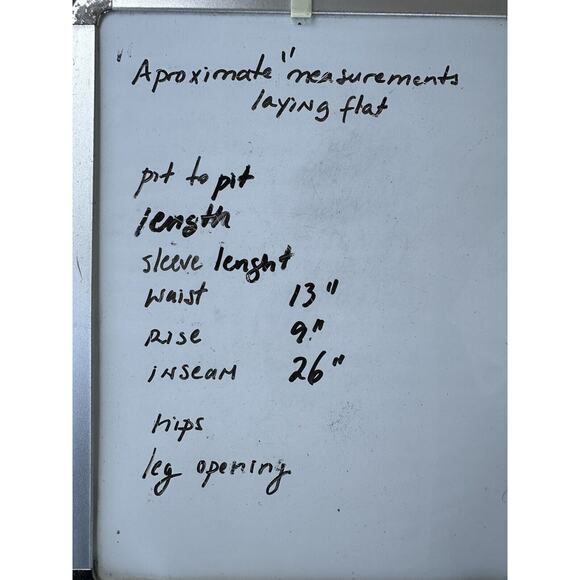 "Aproximate" measurements
laying flat
pit to pit
length
sleeve lenght
waist 13"
Rise 9"
inseam 26"
hips
leg opening